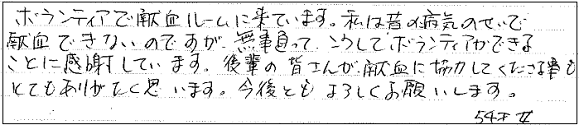 ボランティアで献血ルームに来ています。私は昔の病気のせいで
献血できないのですが、無事育って、こうしてボランティアができる
ことに感謝しています。後輩の皆さんが献血に協力してくださる事も
とてもありがたく思います。今後ともよろしくお願いします。
54才 女